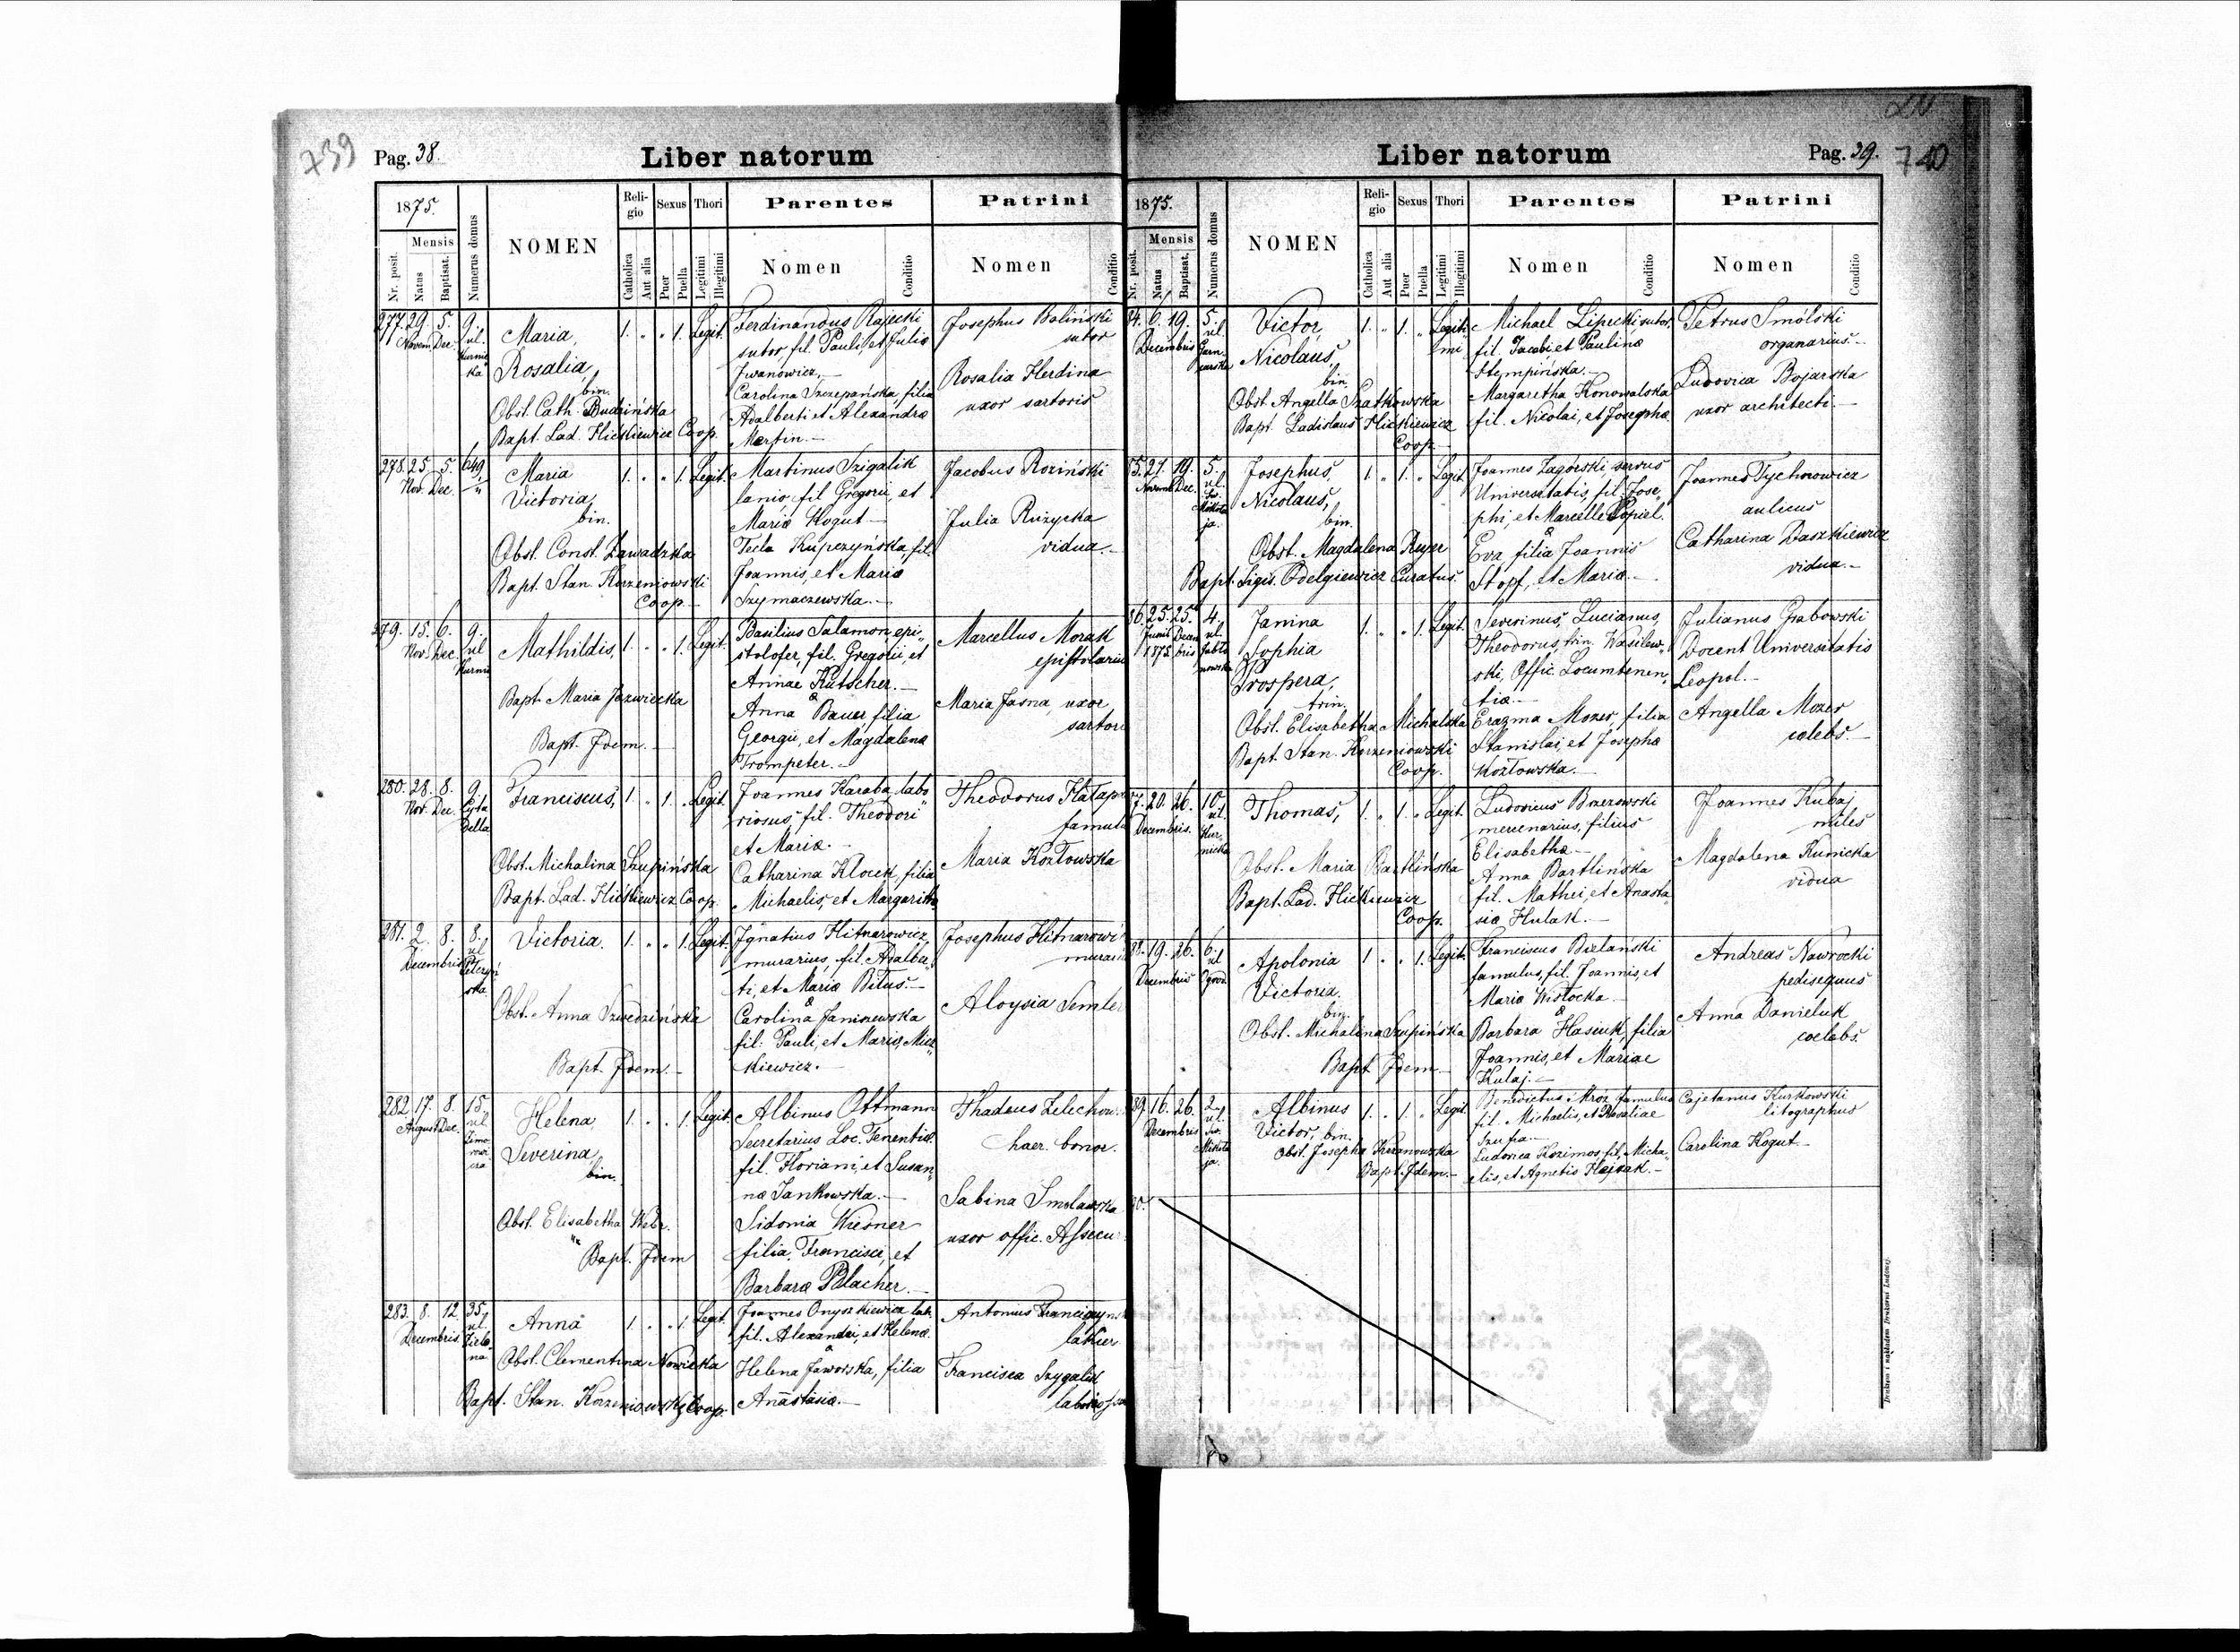 739
Pag. 38.
Liber natorum
1875.
Numerus domus
NOMEN
Reli-
gio
Sexus
Thori
Parentes
Patrini
Mensis
Nr. posit.
Natus
Baptisat.
Catholica
Aut alia
Puer
Puella
Legitimi
Illegitimi
Nomen
Conditio
Nomen
Conditio
277. 29. 5. 9. Maria, 1. " " 1. Legit. Ferdinandus Rajecki Josephus Baliński
Novem. Dec. ul. Rosalia, sutor, fil. Pauli, et Julia sutor
Kurnic
ka
bin. Iwanowicz,
Obst. Cath. Budzińska Carolina Szczepańska, filia Rosalia Herdina
Bapt. Lad. Hickiewicz Coop. Adalberti et Alexandra uxor sartoris
Martin.
278. 25. 5. 649 Maria 1. " " 1. Legit. Martinus Szigalik Jacobus Roziński
Nov. Dec. Victoria, lanio, fil. Gregorii, et
bin. Mariæ Kogut Julia Ruzycka
Obst. Const. Zawadzka Tecla Kupczyńska, fil. vidua.
Bapt. Stan. Korzeniowski Joannis, et Mariæ
Coop. Szymaczewska.
279. 15. 6. 9. Mathildis, 1. " " 1. Legit. Basilius Salamon, epi- Marcellus Morak
Nov. Dec. ul. stolofer, fil. Gregorii, et
Kurnic
Annae Kutscher.
&
Bapt. Maria Jazwiecka Anna Bauer, filia Maria Jasna, uxor
Bapt. Idem. Georgii, et Magdalena
Trompeter.
280. 28. 8. 9. Franciscus, 1. " 1. " Legit. Joannes Karaba, labo Theodorus
Nov. Dec. Cyta riosus, fil. Theodori
della et Mariæ.
Obst. Michalina Szupińska Catharina Klocek, filia Maria Kozłowska
Bapt. Lad. Hickiewicz Coop. Michaelis, et Margarittæ
281. 2. 8. 8. Victoria. 1. " " 1. Legit. Ignatius Hitnarowicz, Josephus
Decembris ul. murarius, fil. Adalber-
ti, et Mariæ Bitus.
&
Obst. Anna Szwedzińska Carolina Janiszewska Aloysia
Bapt. Idem. fil: Pauli, et Mariæ Mic-
kiewicz.
282. 17. 8. 15. Helena, 1. " " 1. Legit. Albinus Ottmann Thadeus
August Dec. ul. Severina, Secretarius Loc. Tenentiæ haer. bonor.
bin. fil. Floriani, et Susan-
næ Jankowska. Sabina Smolawska
Obst. Elisabetha Webr. Sidonia Wiesner uxor offic.
Bapt. Idem filia Francisci, et
Barbaræ Pelacher.
283. 8. 12. 35. Anna 1. " " 1. Legit. Joannes Onyszkiewicz lab. Antonius
Decembris. ul. fil. Alexandri, et Helenæ.
Zielo
na &
Obst. Clementina Nowicka Helena Jaworska, filia Francisca Szygalik
Bapt. Stan. Korzeniowski Coop. Anastasiæ.
Liber natorum
Pag. 39.
740
1875.
Numerus domus
NOMEN
Reli-
gio
Sexus
Thori
Parentes
Patrini
Mensis
Nr. posit.
Natus
Baptisat.
Catholica
Aut alia
Puer
Puella
Legitimi
Illegitimi
Nomen
Conditio
Nomen
Conditio
84. 6. 19. 5. Victor, 1. " 1. " Legiti Michael Lipecki, sutor, Petrus Smólski
Decembris ul. Nicolaus, mi fil. Jacobi, et Paulinæ organarius.
Garn
carska
bin. Stempińska. Ludovica Bojarska
Obst. Angella Szatkowska Margaretha Konowalska uxor architecti.
Bapt. Ladislaus Hickiewicz fil. Nicolai, et Josephæ
Coop.
85. 21. 19. 5. Josephus, 1. " 1. " Legit. Joannes Zagórski servus Joannes Tychnowicz
Novemb. Dec. ul. Nicolaus, Universitatis, fil. Jose- aulicus
Sw.
Mikoła
ja.
bin. phi, et Marcelle Popiel. Catharina Daszkiewicz
&
Obst. Magdalena Reyer Eva, filia Joannis vidua.
Bapt. Sigis. Odelgiewicz Curatus. Stopf, et Mariæ.
86. 25. 25. 4. Janina 1. " " 1. Legit. Severinus, Lucianus, Julianus Grabowski
Junii Decem ul. Sophia Theodorus, trin. Wasilew- Docent Universitatis
1875. bris Jabło
nowska
Prospera, ski, Offic. Locumtenen- Leopol.
trin. tiæ.
Obst. Elisabetha Michalska Erazma Mozer, filia Angella Mozer
Bapt. Stan. Korzeniowski Stanislai, et Josepha coelebs
Coop. Kozłowska.
87. 20. 26. 10. Thomas, 1. " 1. " Legit. Ludovicus Brzezowski Joannes Kubaj
Decembris. ul. mercenarius, filius miles
Kur-
nicka
Elisabethæ
Obst. Maria Bartlińska Anna Bartlińska Magdalena Kunicka
Bapt. Lad. Hickiewicz fil. Mathei, et Anasta- vidua
Coop. siæ Hulak.
88. 19. 26. 6. Apolonia 1. " " 1. Legit. Franciscus Bielański Andreas Nawrocki
Decembris ul. Victoria. famulus, fil. Joannis, et pedisequus
bin. Mariæ Wisłocka.
&
Obst. Michalina Szupińska Barbara Hasiuk, filia Anna Danieluk
Bapt. Idem Joannis, et Mariae coelebs.
Kulaj.
89. 16. 26. 2. Albinus 1. " 1. " Legit. Benedictus Mróz famulus Cajetanus Kurkowski
Decembris ul. Victor, bin. fil. Michaelis, et Rosaliae litographus
Sw.
Mikoła
ja.
Obst. Josepha Kuzanowska Carolina Kogut.
Bapt. Idem. Ludovica Kozimos, fil. Micha-
elis, et Agnetis Hajzak.
90.
Drukiem i nakładem Drukarni Ludowej.